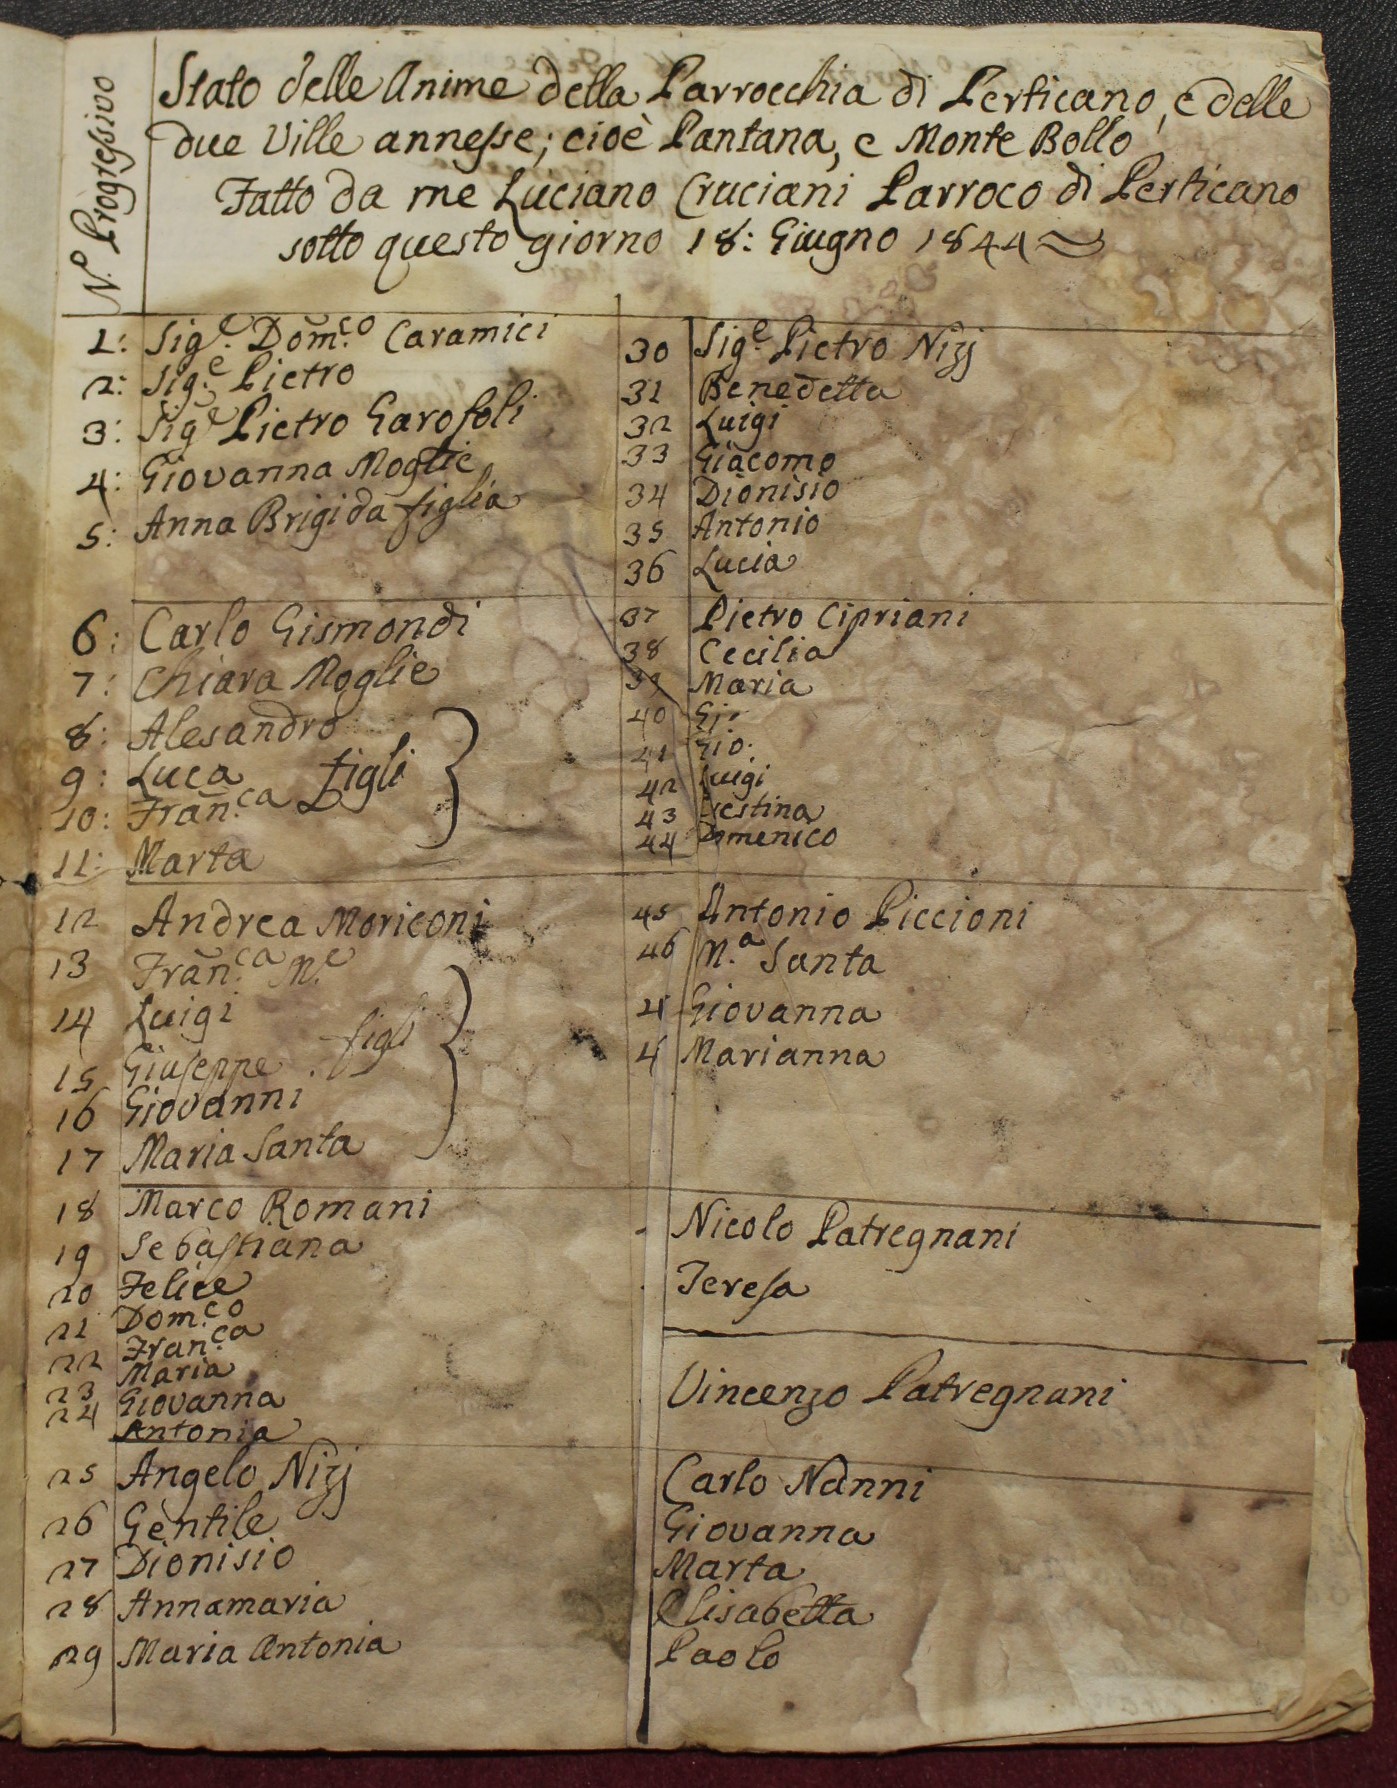 N.º Progressivo
Stato delle Anime della Parrocchia di Perticano, e delle
due Ville annesse; cioè Pantana, e Monte Bollo
Fatto da me Luciano Cruciani Parroco di Perticano
sotto questo giorno 18: Giugno 1844
1: Sig.e Dom.co Caramici
2: Sig.e Pietro
3: Sig.e Pietro Garofoli
4: Giovanna Moglie
5: Anna Brigida figlia
6: Carlo Gismondi
7: Chiara Moglie
8: Alesandro
9: Luca figli
10: Fran.ca
11: Marta
12 Andrea Moriconi
13 Fran.ca M.e
14 Luigi
15 Giuseppe figli
16 Giovanni
17 Maria Santa
18 Marco Romani
19 Sebastiana
20 Felice
21 Dom.co
22 Fran.ca
Maria
23 Giovanna
24 Antonia
25 Angelo Nizj
26 Gentile
27 Dionisio
28 Annamaria
29 Maria Antonia
30 Sig.e Pietro Nizj
31 Benedetta
32 Luigi
33 Giacomo
34 Dionisio
35 Antonio
36 Lucia
37 Pietro Cipriani
38 Cecilia
39 Maria
40
41 Gio.
42 Luigi
43
44 Domenico
45 Antonio Piccioni
46 M.a Santa
4 Giovanna
4 Marianna
Nicolo Patregnani
Teresa
Vincenzo Patregnani
Carlo Nanni
Giovanna
Marta
Elisabetta
Paolo